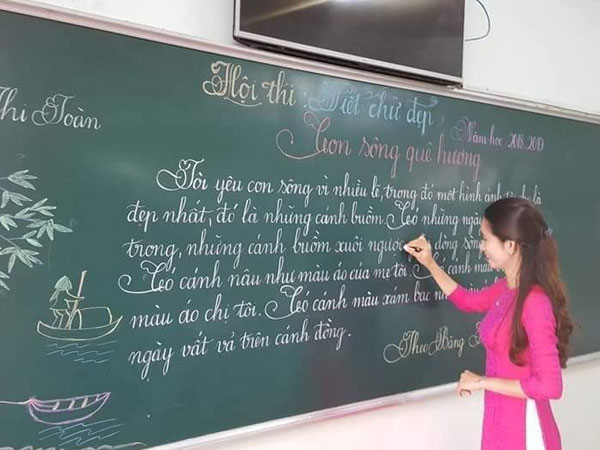 Hội thi: Viết chữ đẹp
Năm học 2018, 2019
Thi Toàn
Con sông quê hương
Tôi yêu con sông vì nhiều lẽ, trong đó một hình ảnh là
đẹp nhất, đó là những cánh buồm. Có những ngày
trong, những cánh buồm xuôi ngược dòng sông
Có cánh nâu như màu áo của mẹ tôi. Có cánh
màu áo chị tôi. Có cánh màu xám bạc
ngày vất vả trên cánh đồng.
Theo Băng